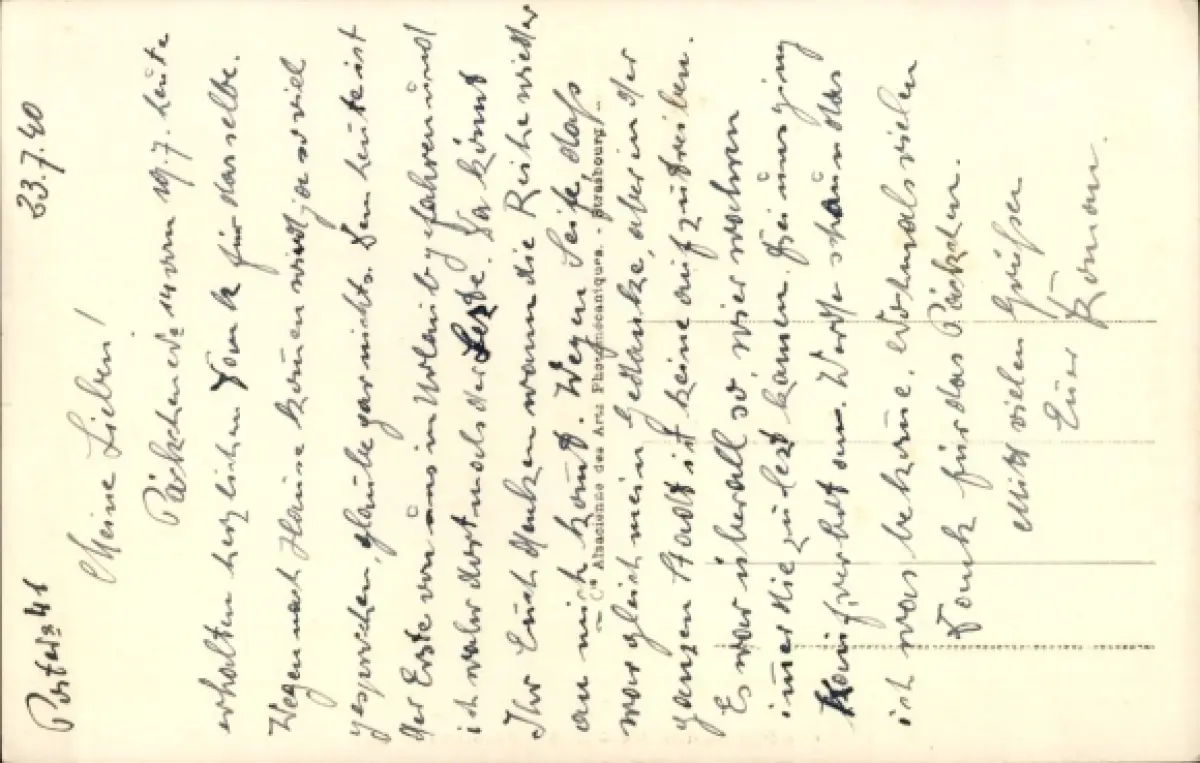 23.7.40
Meine Lieben!
Päckchen vom 19.7. heute
erhalten herzlichen Dank für dasselbe.
Wegen nach Hause kommen wird ja so viel
gesprochen, glaube gar nichts. Denn heute ist
der Erste von uns in Urlaub gefahren und
ich wahr dort nochs der Lezte. Da könnt
Ihr Euch denken wann die Reihe wieder
an mich kommt. Wegen Seife, daß
war gleich mein Gedanke, aber in der
ganzen Stadt ist keine aufzutreiben.
Es war überall so, wier wahren
immer die zulezt kamen. Frei ging
Kauf verbot an. Werde schaun das
ich was bekomme. Nochmals vielen
Dank für das Päckchen.
Mitt vielen Grüßen
Euer
Roman.
Cie Alsacienne des Arts Photomécaniques. - Strasbourg -